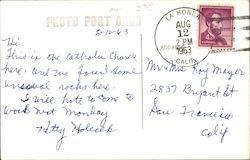 PHOTO POST CARD
8-12-63
LA HONDA
AUG
12
2 PM
1963
CALIF.
Hi
This is the Catholic Church
here. and we found some
unusual rocks here.
I will hate to come to
work next Monday
Mr & Mrs Roy Mayer
2837 Bryant St
San Francisco
Calif